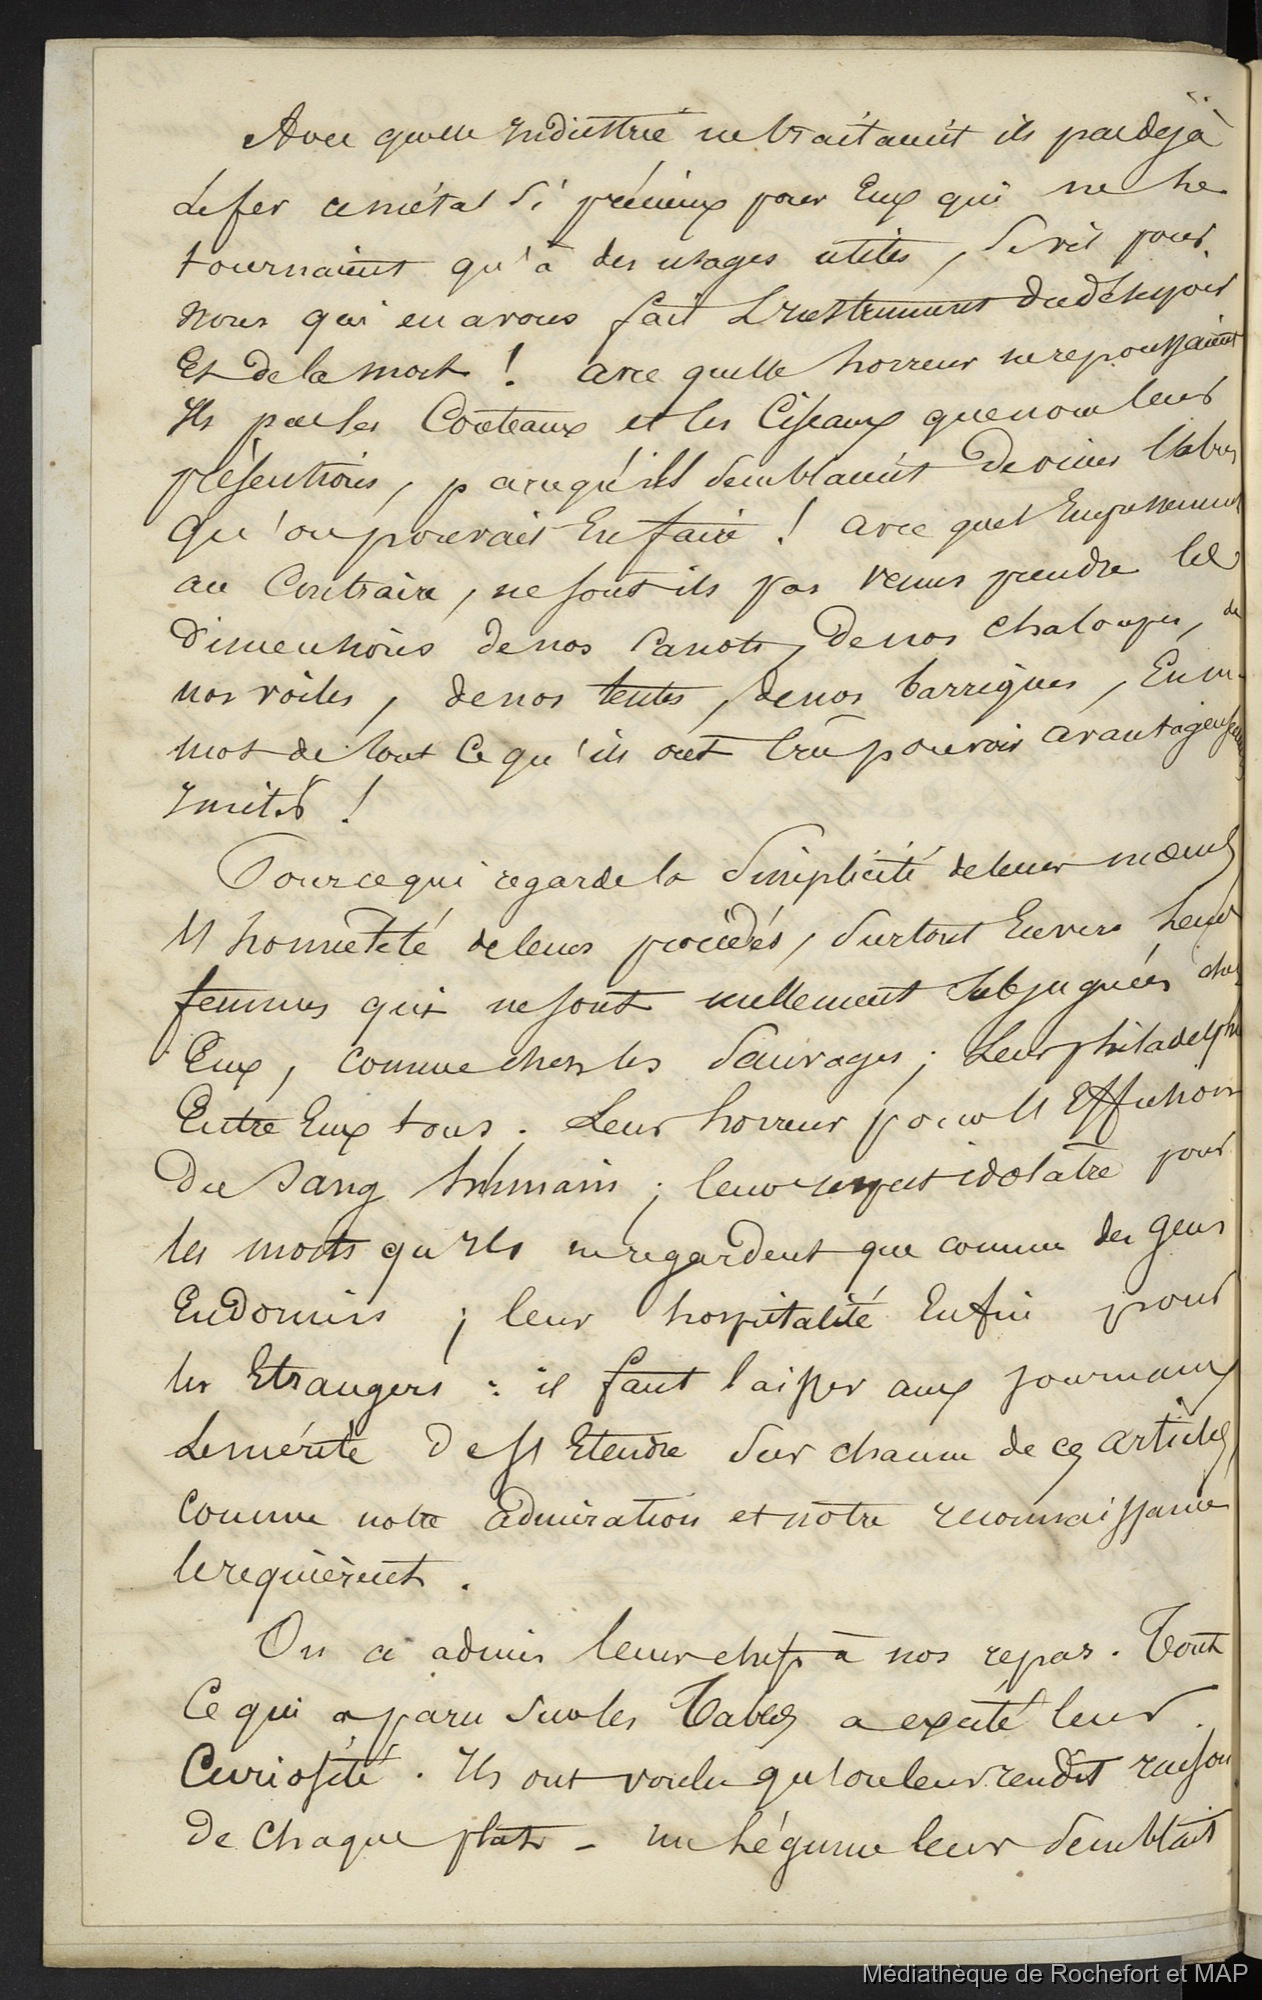 Avec quelle Industrie ne traitaient ils pas déjà
Le fer ce métal si précieux pour Eux qui ne le
tournaient qu'à des usages utiles, si vil pour
nous qui en avons fait L'instrument du désespoir
Et de la mort ! avec quelle horreur ne repoussaient
Ils pas les Couteaux et les Ciseaux que nous leur
présentions, parce qu'ils semblaient deviner l'abus
qu'on pouvait En faire ! avec quel Empressement
au Contraire, ne sont ils pas venus prendre les
Dimensions de nos Canots, de nos chaloupes, de
nos voiles, de nos tentes, de nos barriques, En un
mot de tout Ce qu'ils ont Crû pouvoir avantageusement
Imiter !
Pour ce qui regarde la Simplicité de leur mœurs
l'honnêteté de leurs procédés, surtout Envers leurs
femmes qui ne sont nullement Subjuguées chez
Eux, comme chez les Sauvages ; Leur philadelphie
Entre Eux tous . Leur horreur pour l'Effusion
Du Sang humain ; leur respect idolatre pour
les morts qu'Ils ne regardent que comme des gens
Endormis ; leur hospitalité Enfin pour
les Etrangers : il faut laisser aux journaux
Le mérite De s'Etendre sur chacun de ces articles,
comme notre admiration et notre reconnaissance
le requièrent .
On a admis leur chefs à nos repas . Tout
Ce qui a paru sur les Tables a excité leur
Curiosité . Ils ont voulu qu'on leur rendît raison
de chaque plats - un Légume leur semblait
Médiathèque de Rochefort et MAP